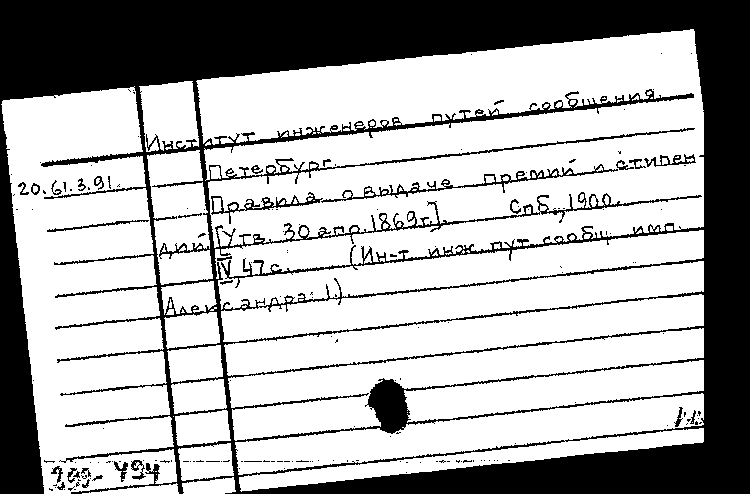 Институт инженеров путей сообщения.
Петербург.
20.61.3.91.
Правила о выдаче премий и стипен-
дий. [Утв. 30 апр. 1869г.]. Спб., 1900.
IV, 47 с. (Ин-т инж. пут. сообщ. имп.
Александра I.).
299-494